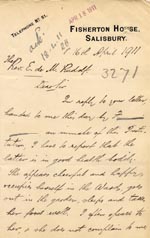 TELEPHONE No 51.
APR 18 1911
FISHERTON HOUSE,
SALISBURY.
16th April 1911
18.4.11
Rev. E. de M. Rudolf
3271
Dear Sir
In reply to your letter
handed to me this day by
an inmate of this Insti-
tution, I have to report that the
latter is in good health bodily.
She appears cheerful and
occupies herself in the Wards, goes
out in the garden, sleeps and takes
her food well. I often speak to
her, & she does not complain to me